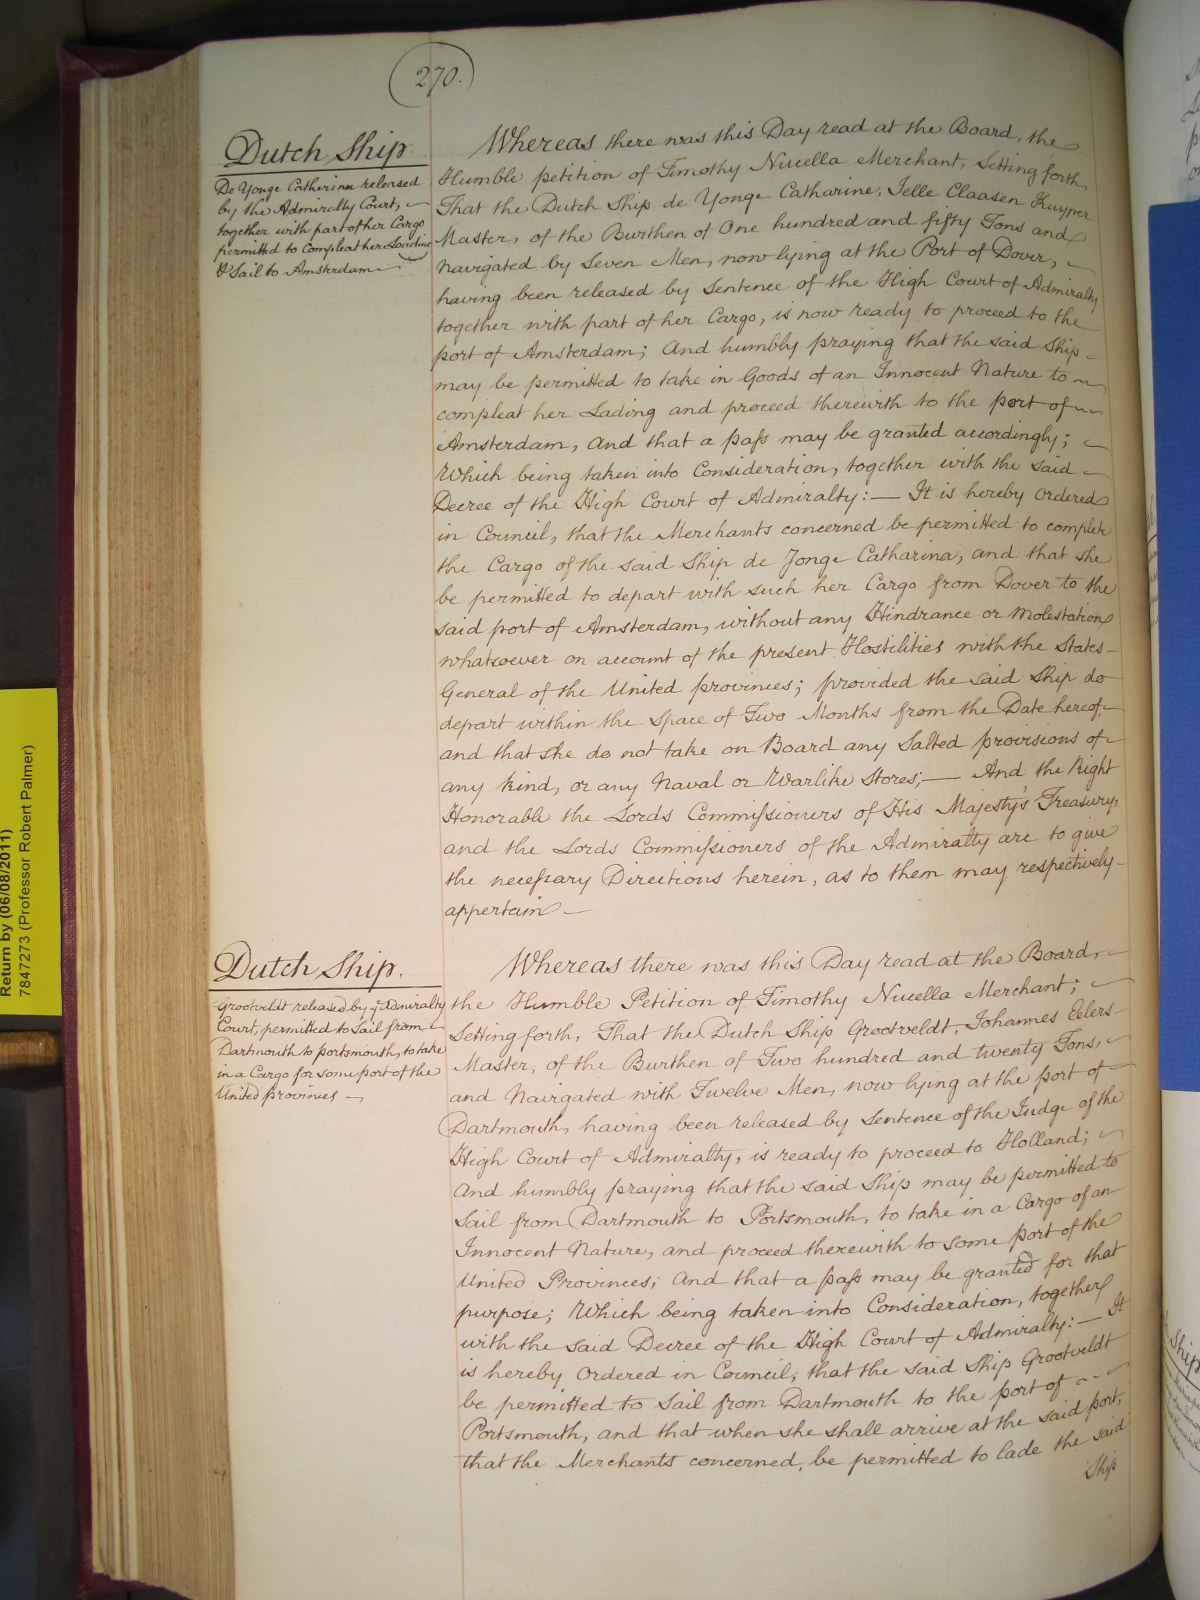 270.
Dutch Ship
De Yonge Catherina released
by the Admiralty Court,
together with part of her Cargo
permitted to Compleat her Loading
& Sail to Amsterdam
Whereas there was this Day read at the Board, the
Humble petition of Timothy Nucella Merchant, Setting forth,
That the Dutch Ship de Yonge Catharine, Jelle Claasen Kuyper
Master, of the Burthen of One hundred and fifty Tons and
Navigated by Seven Men, now lying at the Port of Dover,
having been released by Sentence of the High Court of Admiralty
together with part of her Cargo, is now ready to proceed to the
port of Amsterdam; And humbly praying that the said Ship
may be permitted to take in Goods of an Innocent Nature to
compleat her Lading and proceed therewith to the port of
Amsterdam, and that a pass may be granted accordingly;
Which being taken into Consideration, together with the said
Decree of the High Court of Admiralty:— It is hereby Ordered
in Council, that the Merchants concerned be permitted to complete
the Cargo of the said Ship de Jonge Catharina, and that she
be permitted to depart with such her Cargo from Dover to the
said port of Amsterdam, without any Hindrance or Molestation
whatsoever on account of the present Hostilities with the States
General of the United provinces; provided the said Ship do
depart within the Space of Two Months from the Date hereof,
and that she do not take on Board any Salted provisions of
any kind, or any Naval or Warlike Stores;— And the Right
Honorable the Lords Commissioners of His Majesty's Treasury,
and the Lords Commissioners of the Admiralty are to give
the necessary Directions herein, as to them may respectively
appertain —
Dutch Ship.
Grootveldt released by ye. Admiralty
Court, permitted to Sail from
Dartmouth to portsmouth, to take
in a Cargo for some port of the
United provinces —
Whereas there was this Day read at the Board,
the Humble Petition of Timothy Nucella Merchant;
Setting forth, That the Dutch Ship Grootveldt, Johannes Eelers
Master, of the Burthen of Two hundred and twenty Tons,
and Navigated with Twelve Men, now lying at the port of
Dartmouth, having been released by Sentence of the Judge of the
High Court of Admiralty, is ready to proceed to Holland;
And humbly praying that the said Ship may be permitted to
Sail from Dartmouth to Portsmouth, to take in a Cargo of an
Innocent Nature, and proceed therewith to some port of the
United Provinces; And that a pass may be granted for that
purpose; Which being taken into Consideration, together
with the said Decree of the High Court of Admiralty:— It
is hereby Ordered in Council, that the said Ship Grootveldt
be permitted to Sail from Dartmouth to the port of
Portsmouth, and that when she shall arrive at the said port,
that the Merchants concerned, be permitted to lade the said
Ship
Return by (06/08/2011)
7847273 (Professor Robert Palmer)
Ship